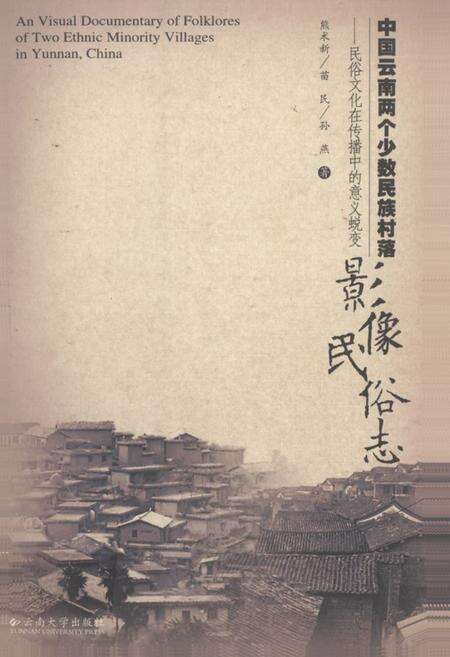 An Visual Documentary of Folklores
of Two Ethnic Minority Villages
in Yunnan, China
中国云南两个少数民族村落
——民俗文化在传播中的意义蜕变
熊术新/苗 民/孙 燕 著
影像
民俗志
云南大学出版社
YUNNAN UNIVERSITY PRESS